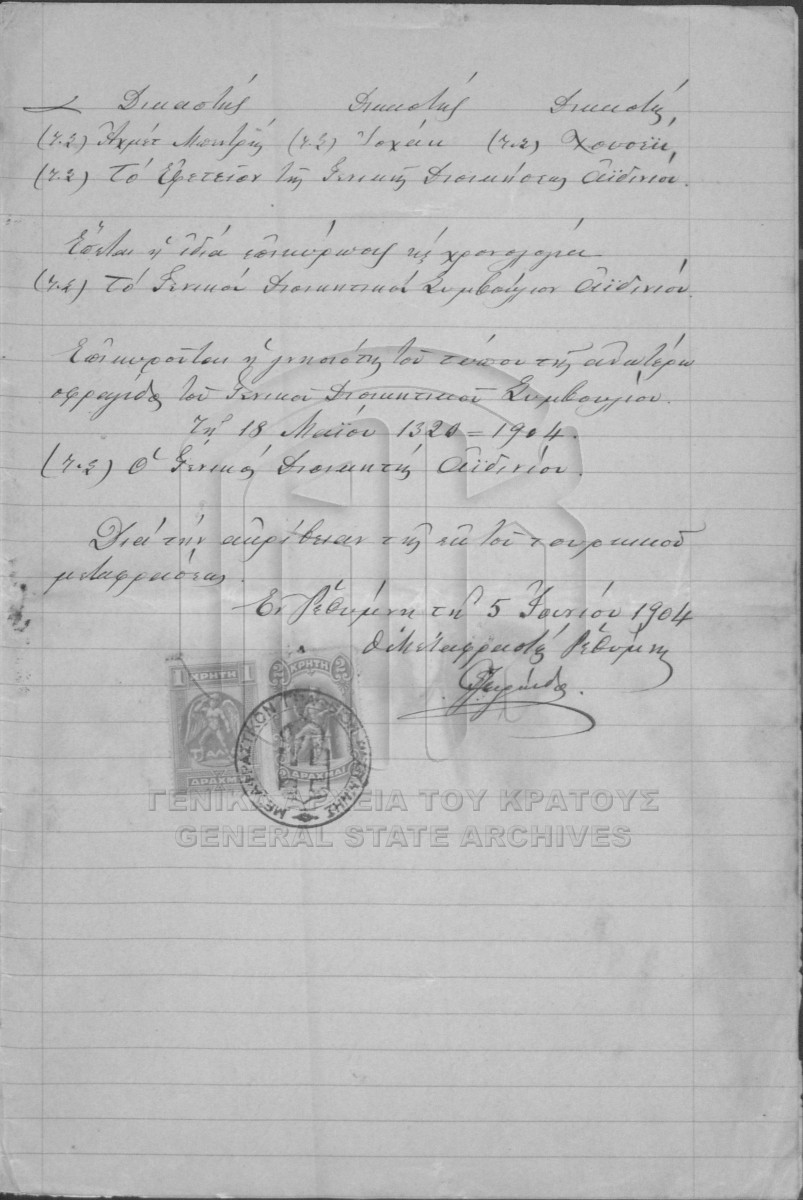 Δικαστής Δικαστής Δικαστής
(τ.σ) Ἀχμέτ (τ.σ) Ἰσχάκ (τ.σ)
(τ.σ) Τὸ Ἐφετεῖον τῆς Γενικῆς Διοικήσεως Ἀϊδινίου.
Ἕπεται ἡ ἰδία ἐπικύρωσις καὶ χρονολογία
(τ.σ) Τὸ Γενικὸν Διοικητικὸν Συμβούλιον Ἀϊδινίου.
Ἐπικυροῦται ἡ γνησιότης τοῦ τύπου τῆς ἀνωτέρω
σφραγίδος τοῦ Γενικοῦ Διοικητικοῦ Συμβουλίου.
Τῇ 18 Μαΐου 1320 = 1904.
(τ.σ) Ὁ Γενικὸς Διοικητὴς Ἀϊδινίου.
Διὰ τὴν ἀκρίβειαν τῆς ἐκ τοῦ τουρκικοῦ
μεταφράσεως.
Ἐν Ρεθύμνῃ τῇ 5 Ἰουνίου 1904
Ὁ Μεταφραστὴς Ρεθύμνης
1 ΚΡΗΤΗ 1
ΤΑΛΩΣ
ΔΡΑΧΜΗ
2 ΚΡΗΤΗ 2
ΔΡΑΧΜΑΙ
ΜΕΤΑΦΡΑΣΤΙΚΟΝ ΓΡΑΦΕΙΟΝ ΡΕΘΥΜΝΗΣ
ΓΕΝΙΚΑ ΑΡΧΕΙΑ ΤΟΥ ΚΡΑΤΟΥΣ
GENERAL STATE ARCHIVES